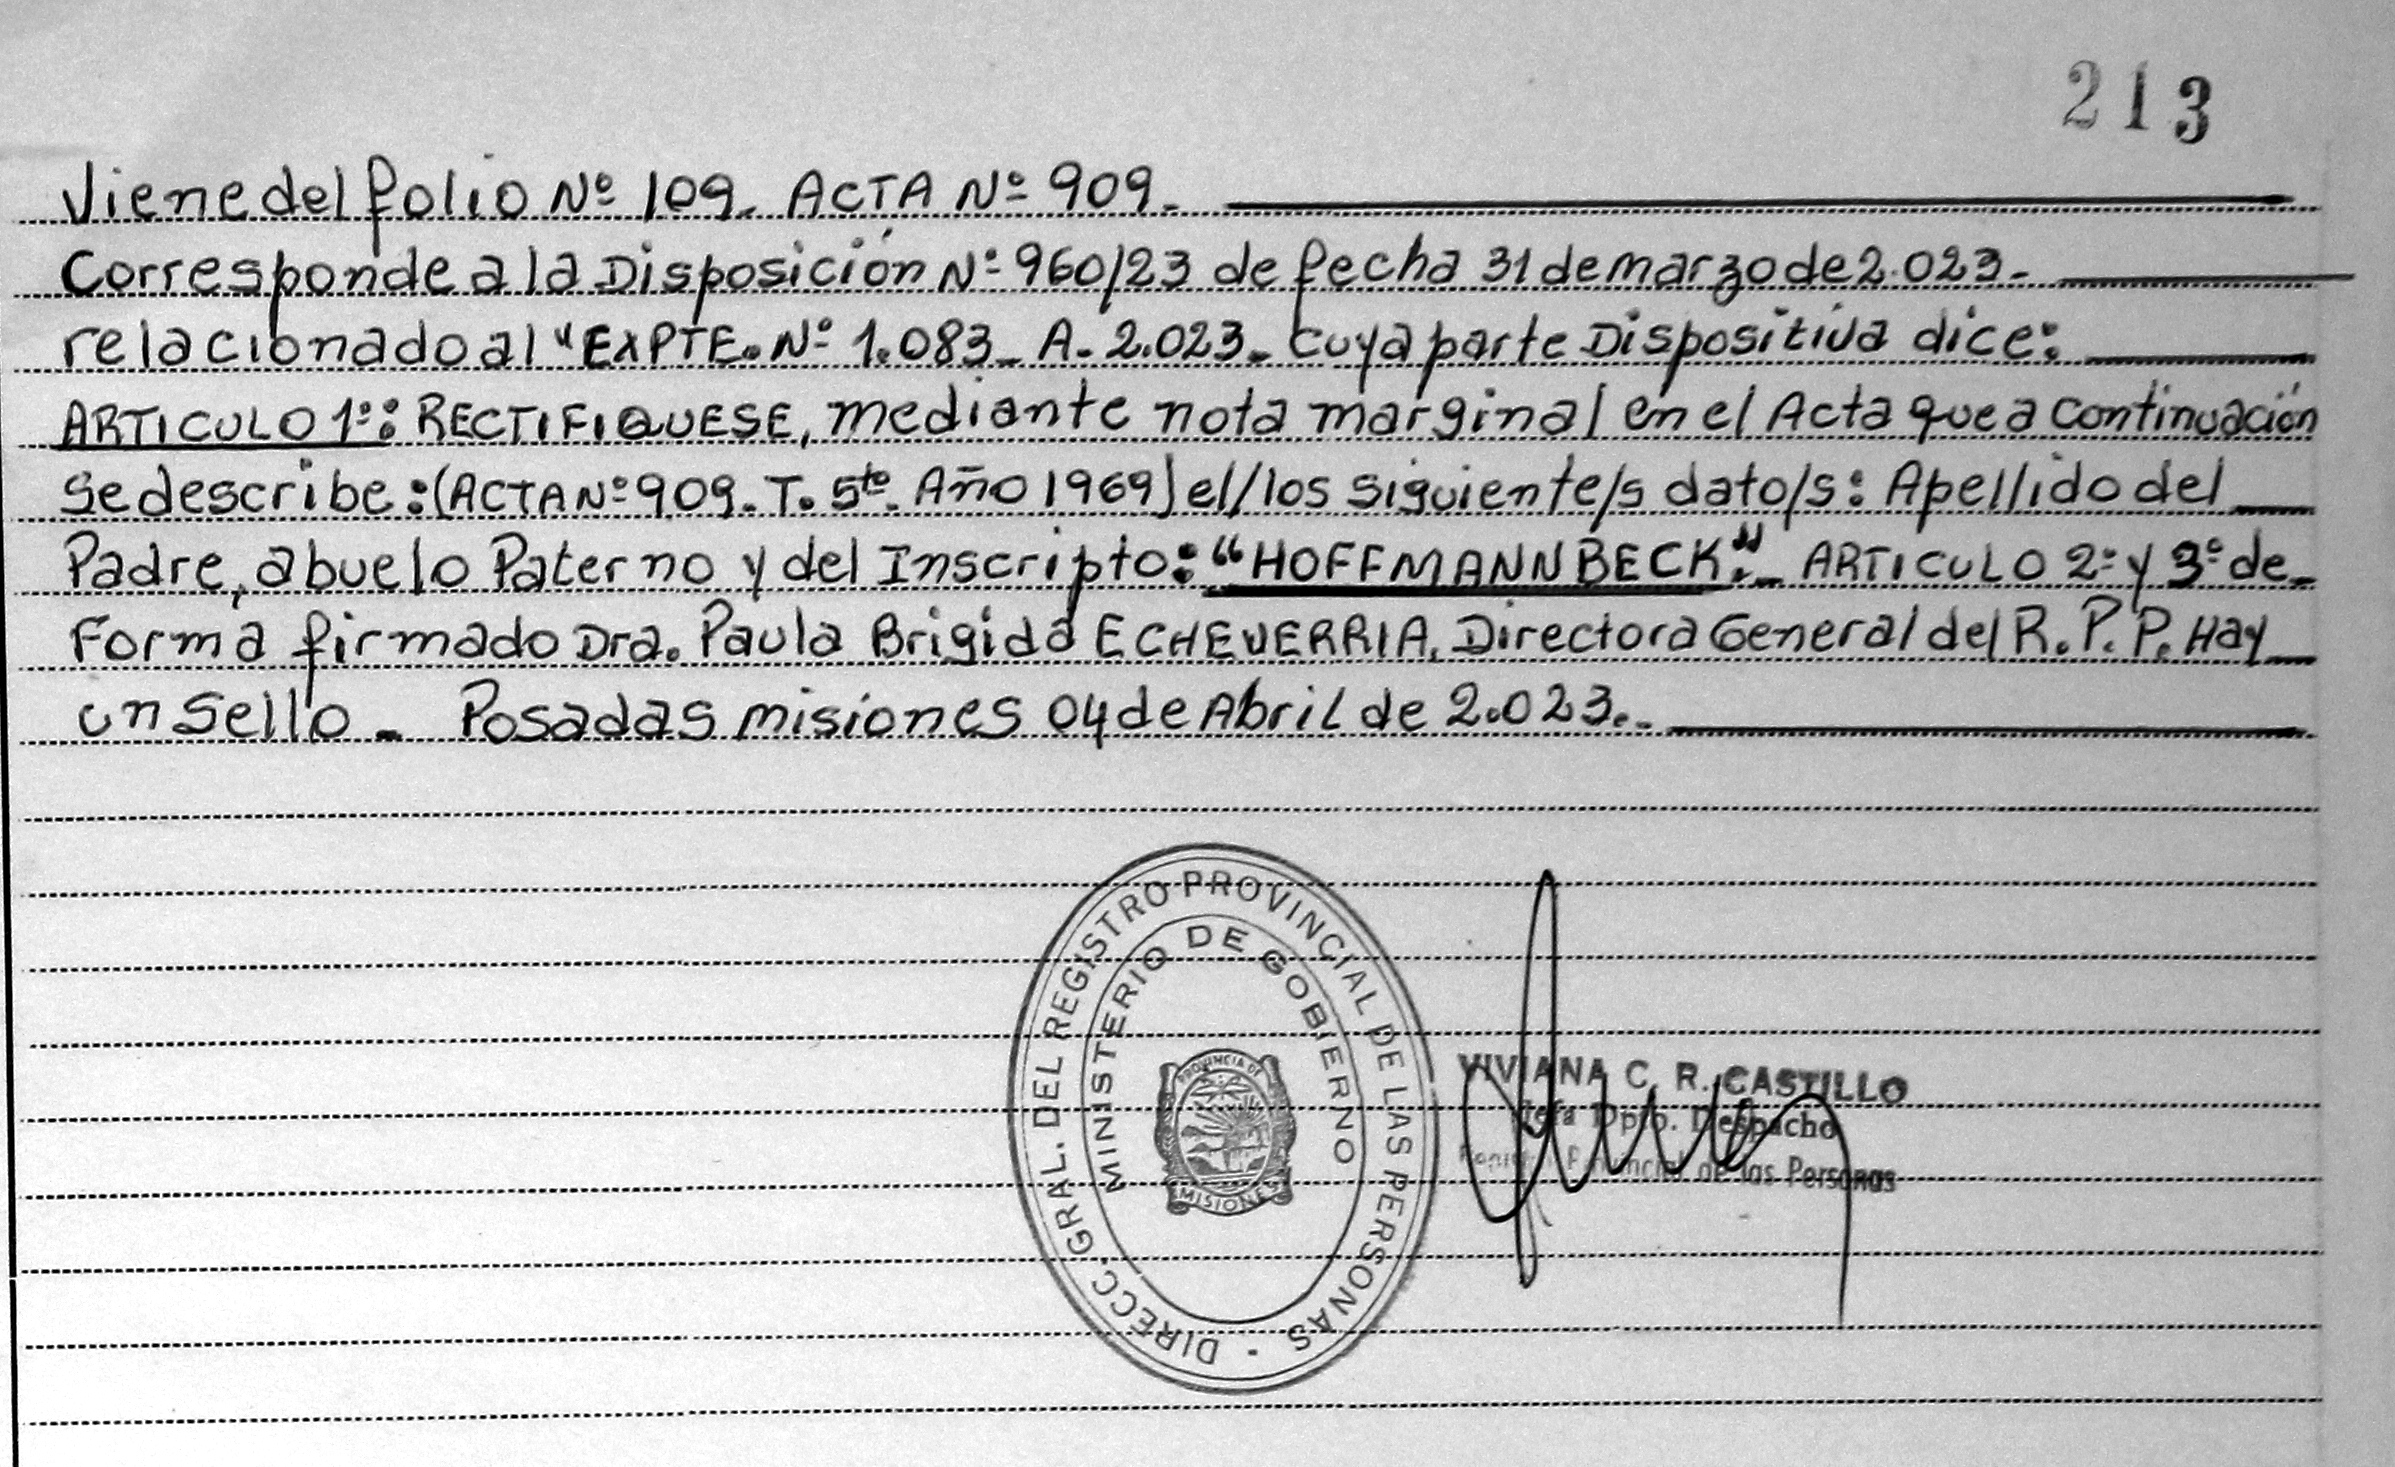 213
Viene del folio Nº 109. ACTA Nº 909.
Corresponde a la Disposición Nº 960/23 de fecha 31 de marzo de 2.023.
relacionado al "EXPTE. Nº 1.083_ A. 2.023. cuya parte Dispositiva dice:
ARTICULO 1º: RECTIFIQUESE, mediante nota marginal en el Acta que a continuación
Se describe: (ACTA Nº 909. T. 5to. Año 1969) el/los siguiente/s dato/s: Apellido del
Padre, abuelo Paterno y del Inscripto: "HOFFMANNBECK". ARTICULO 2º y 3º de
Forma firmado Dra. Paula Brigida ECHEVERRIA. Directora General del R. P. P. Hay
un Sello. Posadas misiones 04 de Abril de 2.023.
DIRECC. GRAL. DEL REGISTRO PROVINCIAL DE LAS PERSONAS
MINISTERIO DE GOBIERNO
PROVINCIA DE
MISIONES
VIVIANA C. R. CASTILLO
Jefa Dpto. Despacho
Registro Provincial de las Personas